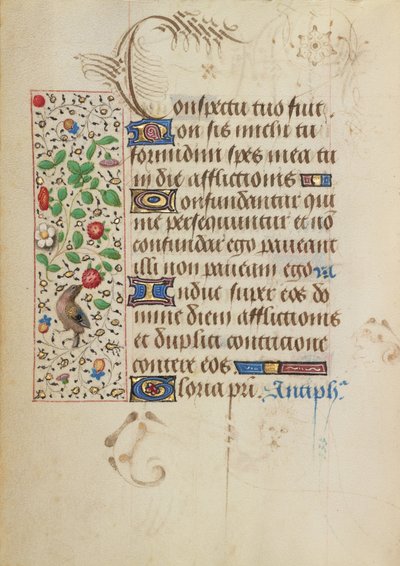 Conspectu tuo fuit
Non sis michi tu
formidini spes mea tu
in die afflictionis
Confundantur qui
me persequuntur et nō
confundar ego paueant
illi non paueam ego
Induc super eos do
mine diem afflictionis
et duplici contricione
contere eos
Gloria pri. Antiphª